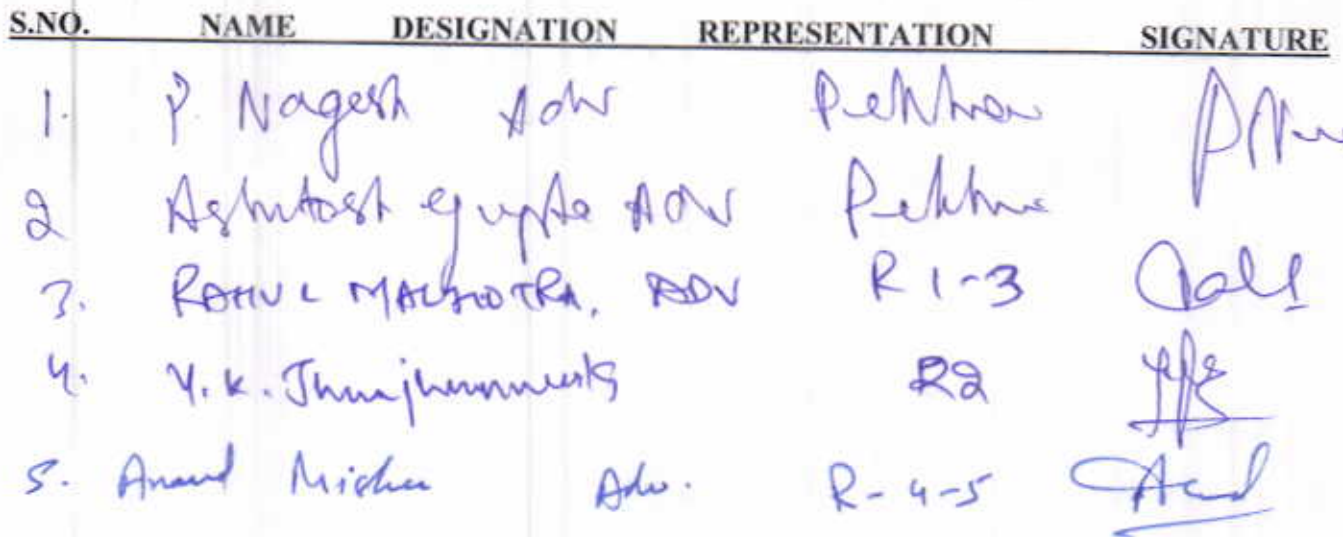 S.NO. NAME DESIGNATION REPRESENTATION SIGNATURE
1. P. Nagesh Adv Petitioner
2 Ashutosh Gupta ADV Petitioner
3. RAHUL MALHOTRA, ADV R 1-3
4. Y.K. R2
5. Anand Mishra Adv. R-4-5